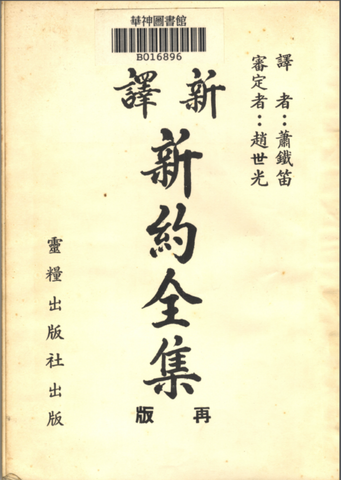 華神圖書館
B016896
譯者：蕭鐵笛
審定者：趙世光
新譯
新約全集
再版
靈糧出版社出版